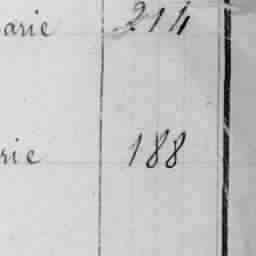 arie 214
rie 188